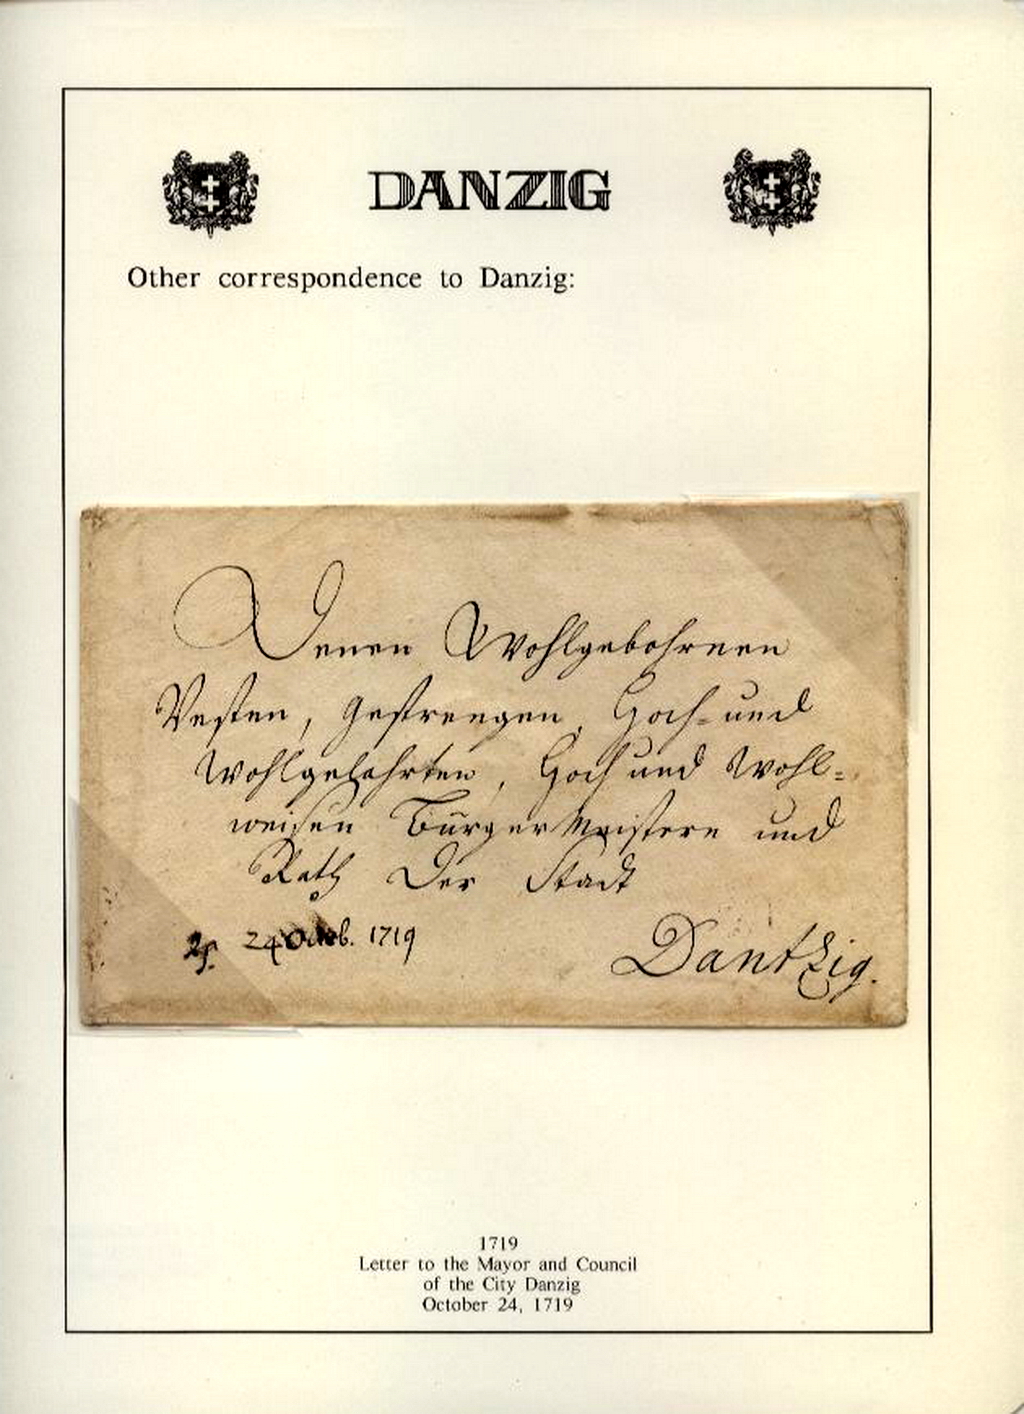 DANZIG
Other correspondence to Danzig:
Denen Wohlgebohrnen
Vesten, Gestrengen, Hoch- und
Wohlgelahrten, Hoch und Wohl=
weisen BürgerMeistere und
Rath Der Stadt
24 Octob. 1719
Dantzig.
1719
Letter to the Mayor and Council
of the City Danzig
October 24, 1719